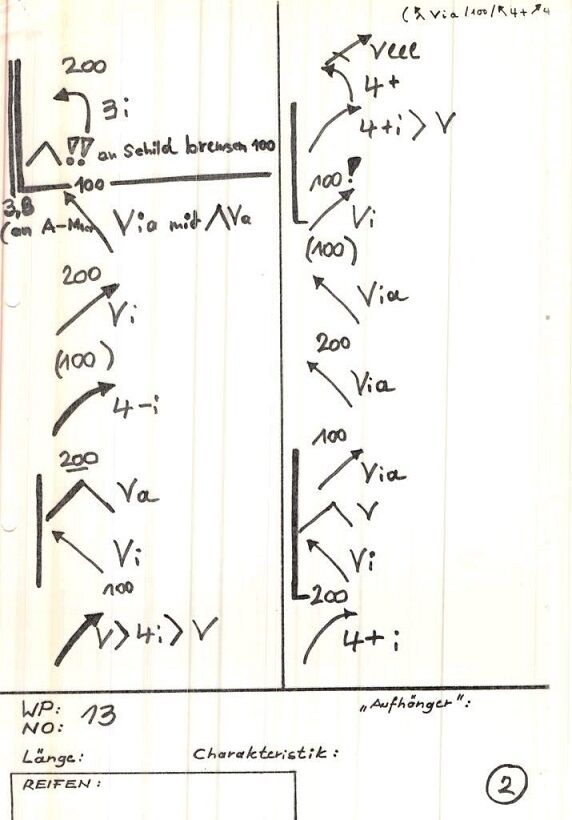 (↖ Via /100/ ↖ 4+ ↗ 4
200
3i
∧ !! an Schild bremsen 100
100
3,8
Via mit ∧Va
200
Vi
(100)
4-i
200
Va
Vi
100
V > 4i > V
veee
4+
4+i > V
100!
Vi
(100)
Via
200
Via
100
Via
V
Vi
200
4+i
WP:
NO: 13
Länge:
Charakteristik:
„Aufhänger":
REIFEN:
2